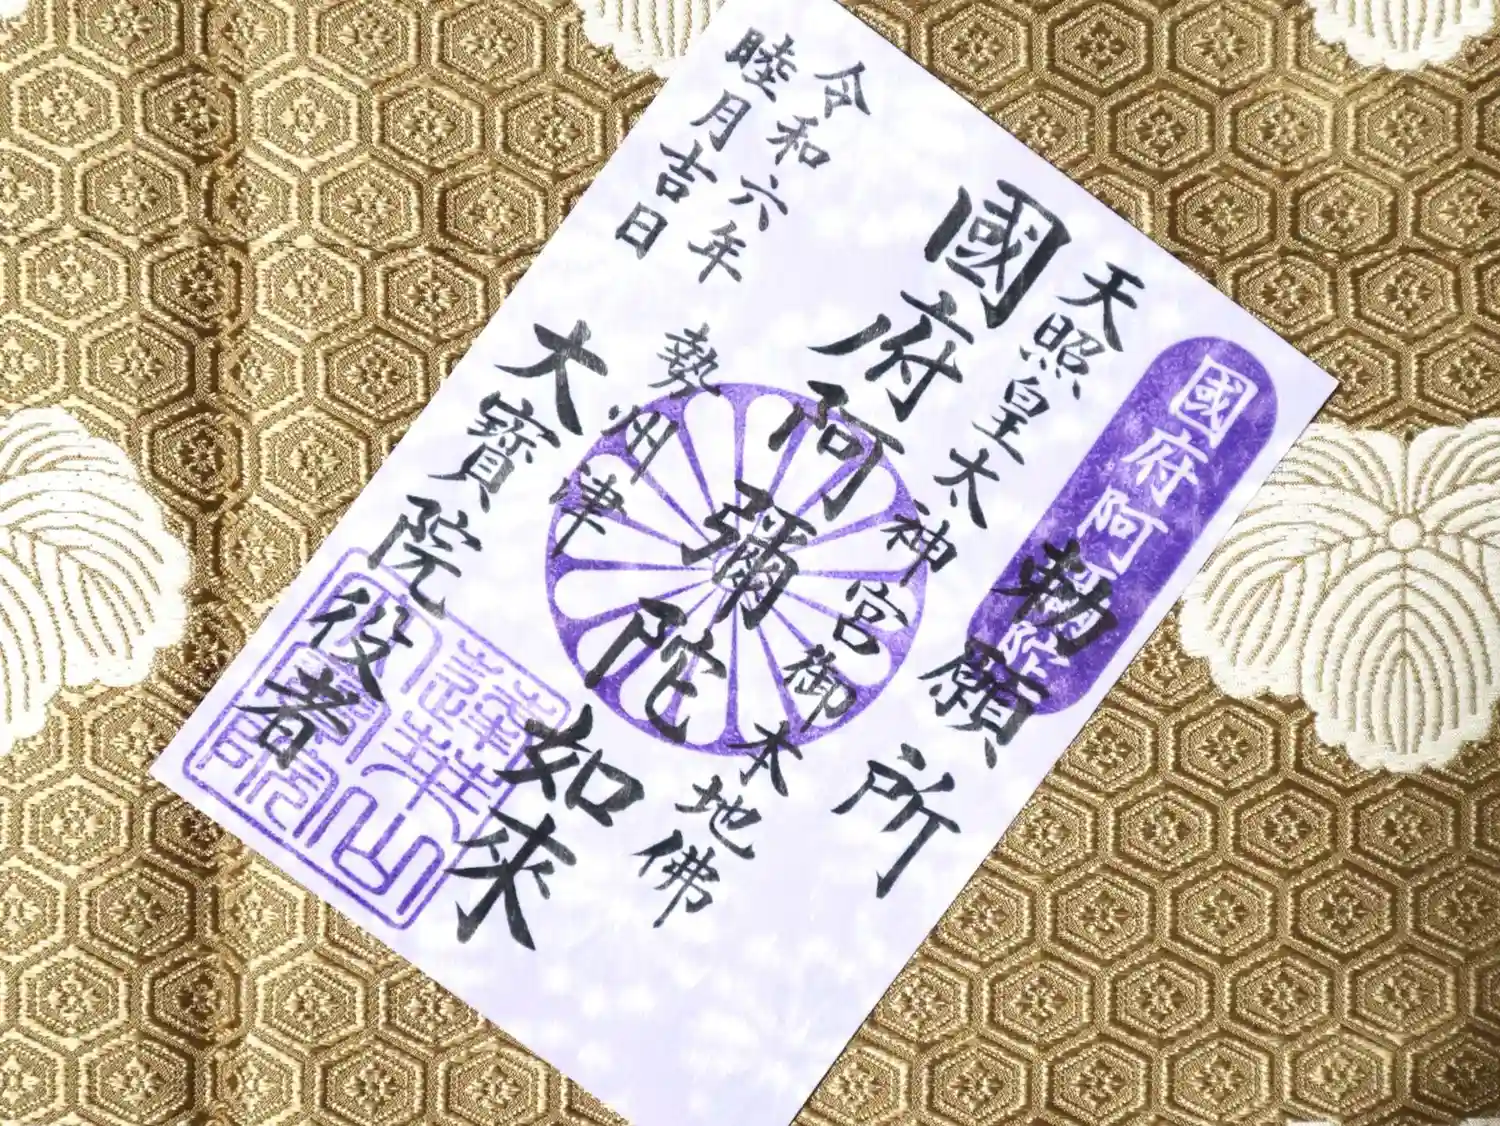 國府阿彌陀
勅願所
天照皇太神宮御本地佛
國府阿彌陀如來
令和六年
睦月吉日
勢州津
大寶院役者